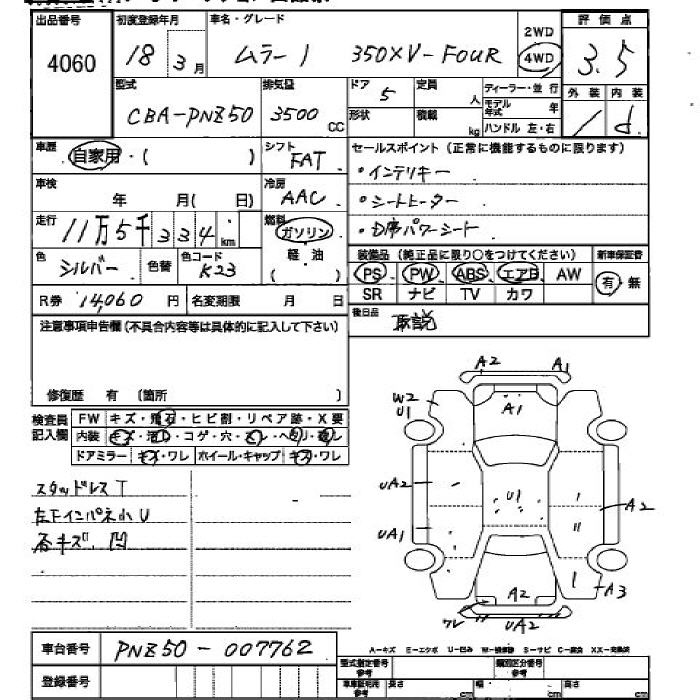 出品番号 初度登録年月 車名・グレード 2WD 評価点
4060 18 3月 ムラーノ 350XV-FOUR 4WD 3.5
型式 排気量 ドア 5 定員 人 ディーラー・並行 外装 内装
CBA-PNZ50 3500 CC 形状 積載 kg モデル年式 年 ハンドル 左・右 d
車歴 自家用・( ) シフト FAT セールスポイント (正常に機能するものに限ります)
・インテリキー
車検 年 月( 日) 冷房 AAC ・シートヒーター
走行 11万5千334km 燃料 ガソリン ・D席パワーシート
色 シルバー 色替 色コード K23 軽・油 装備品 (純正品に限り○をつけてください) 新車保証書
PS PW ABS エアB AW 有・無
R券 14,060円 名変期限 月 日 SR ナビ TV カワ
注意事項申告欄 (不具合内容等は具体的に記入して下さい) 後日品 取説
修復歴 有 (箇所 )
検査員記入欄 FW キズ・飛石・ヒビ割・リペア跡・X要
内装 キズ・汚れ・コゲ・穴・スレ・ヘタリ・破レ
ドアミラー キズ・ワレ ホイール・キャップ キズ・ワレ
A2 A1
W2 U1 A1
スタッドレスT UA2 U1 A2
左下インパネ小U UA1
各キズ、凹 A2 A3
ワレ UA2
車台番号 PNZ50-007762
A-キズ E-エクボ U-凹み W-補修跡 S-サビ C-腐食 XX-交換済
登録番号 型式指定番号 参考 類別区分番号 参考
車車証記載 参考 長さ cm 幅 cm 高さ cm